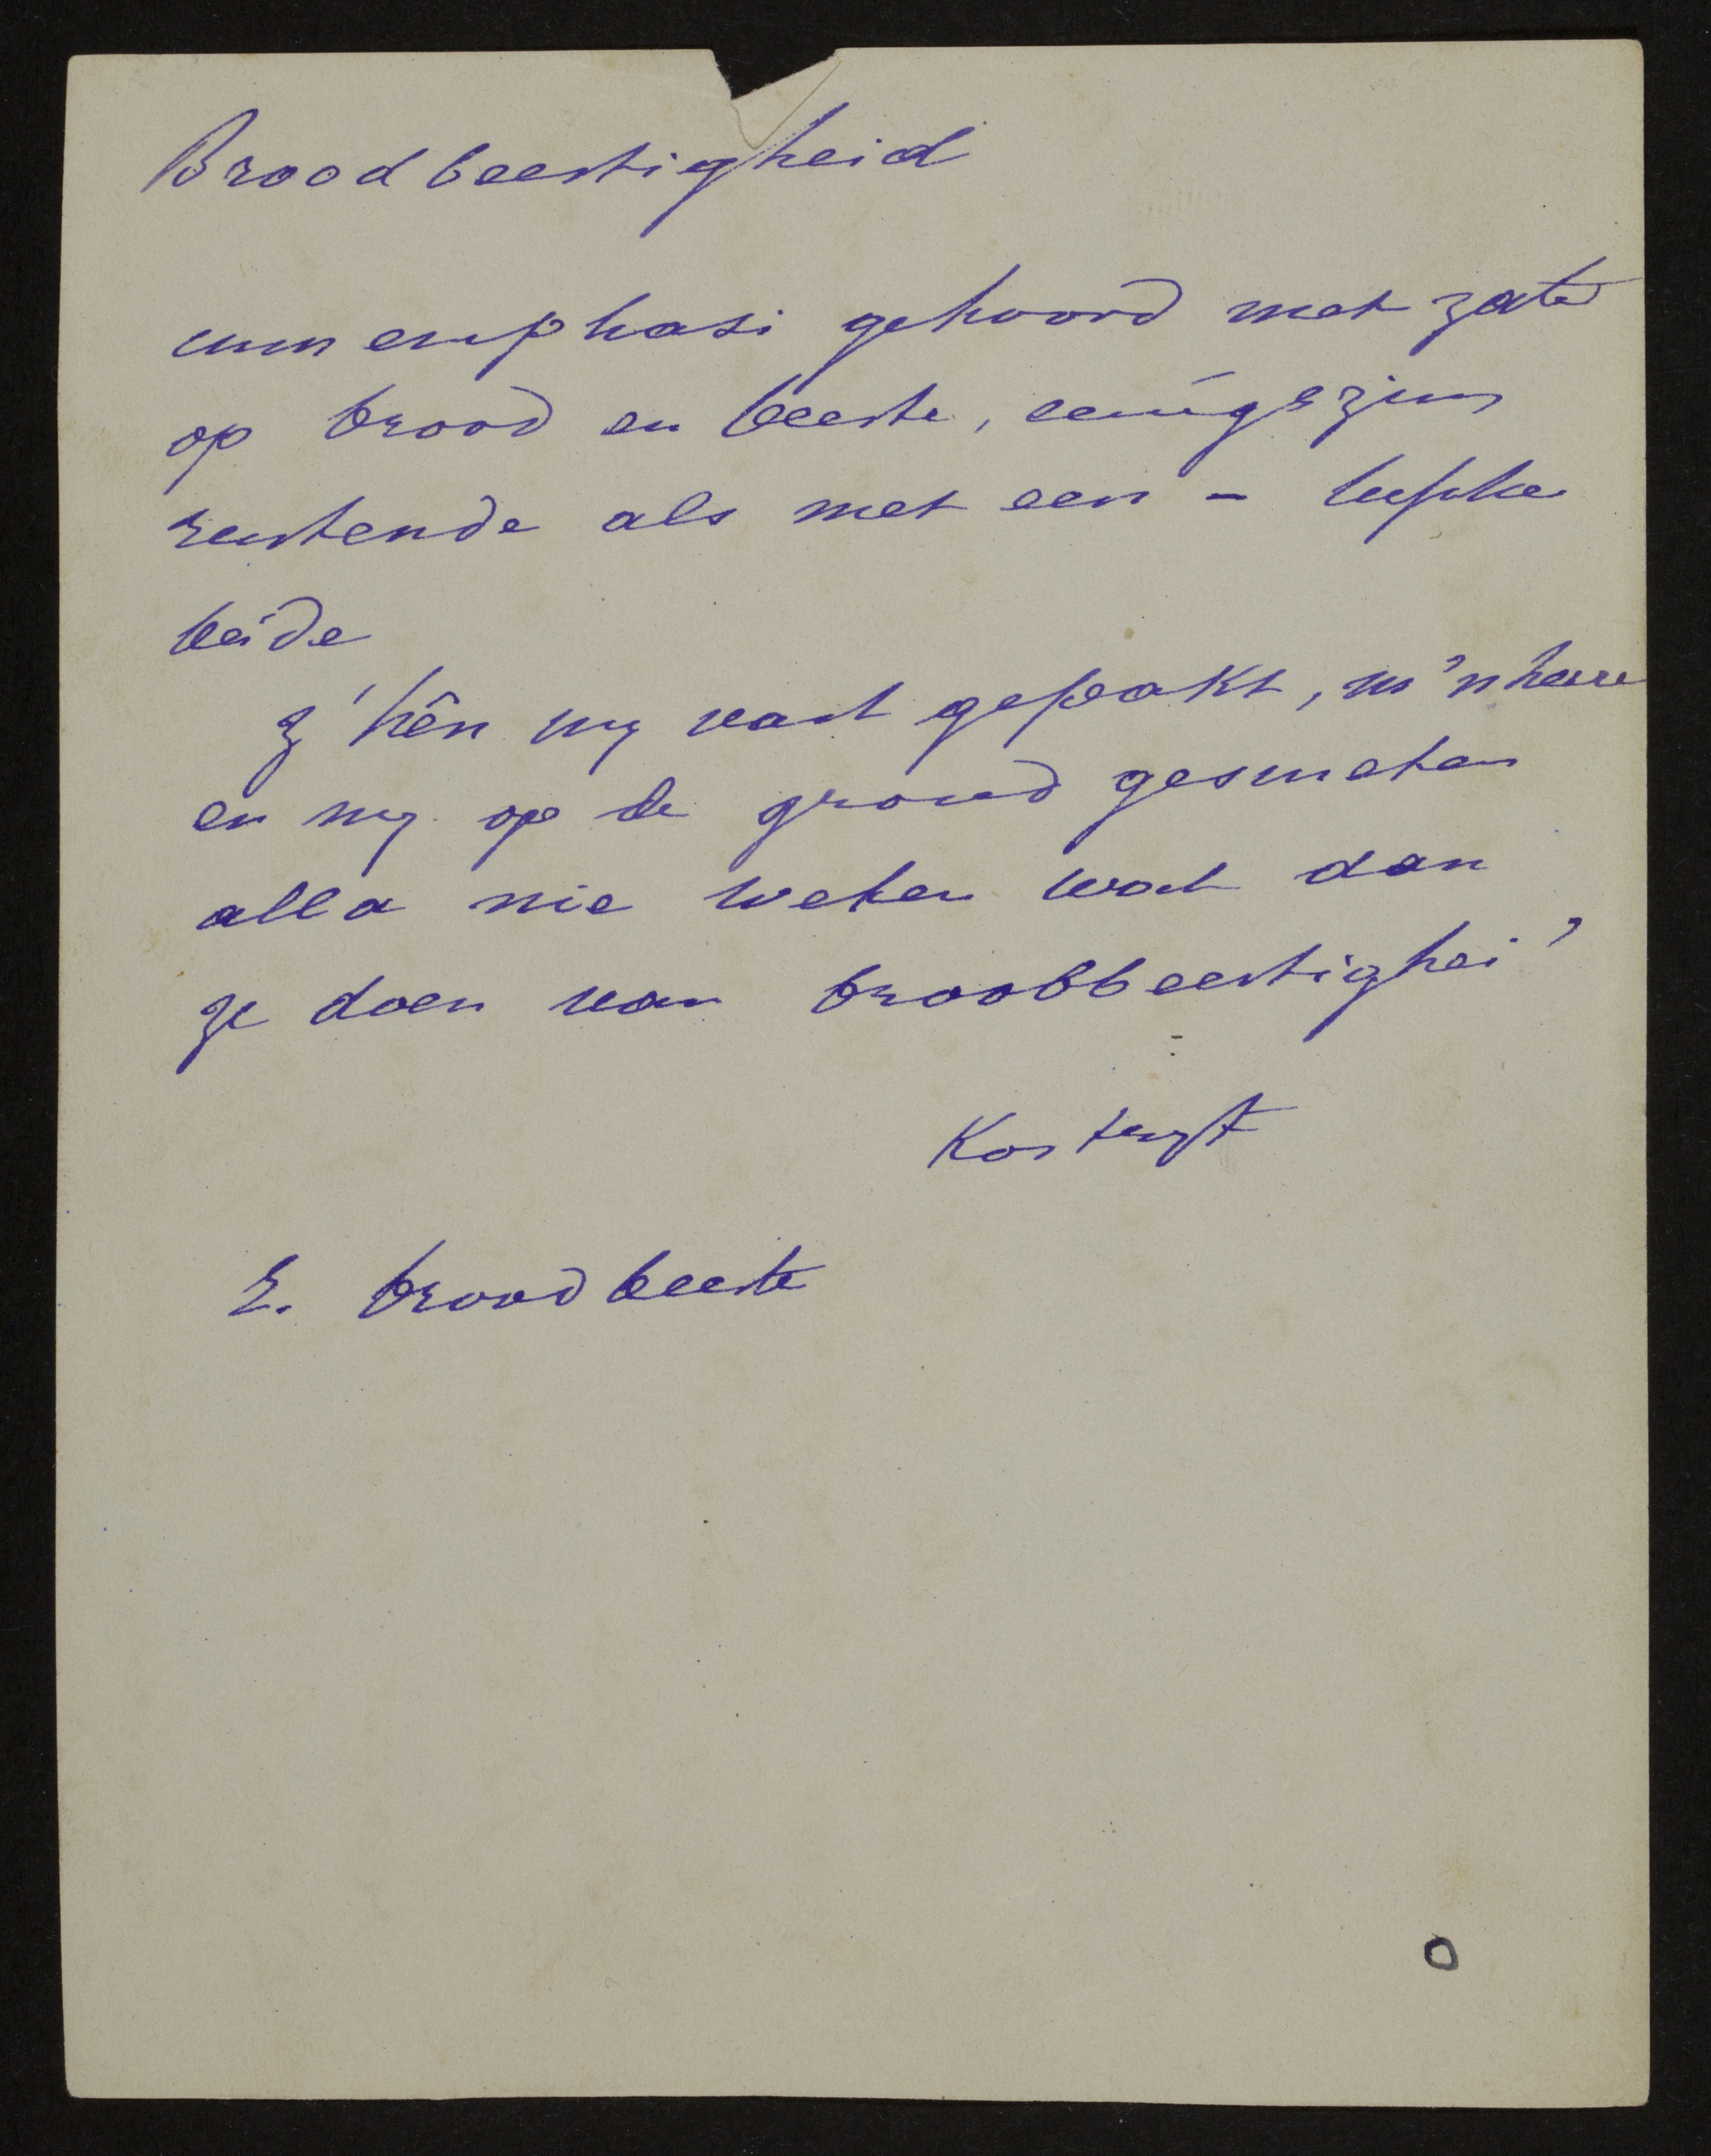 Broodbeestigheid
cum emphasi gehoord met zate
op brood en beeste, eenigszins
rustende als met een -
beide
z'hên my vast gepakt, m'nheere
en my op de grond gesmeten
alla nie weten wat dan
ze doen van broobbeestighei'
Kortryk
R. broodbeeste